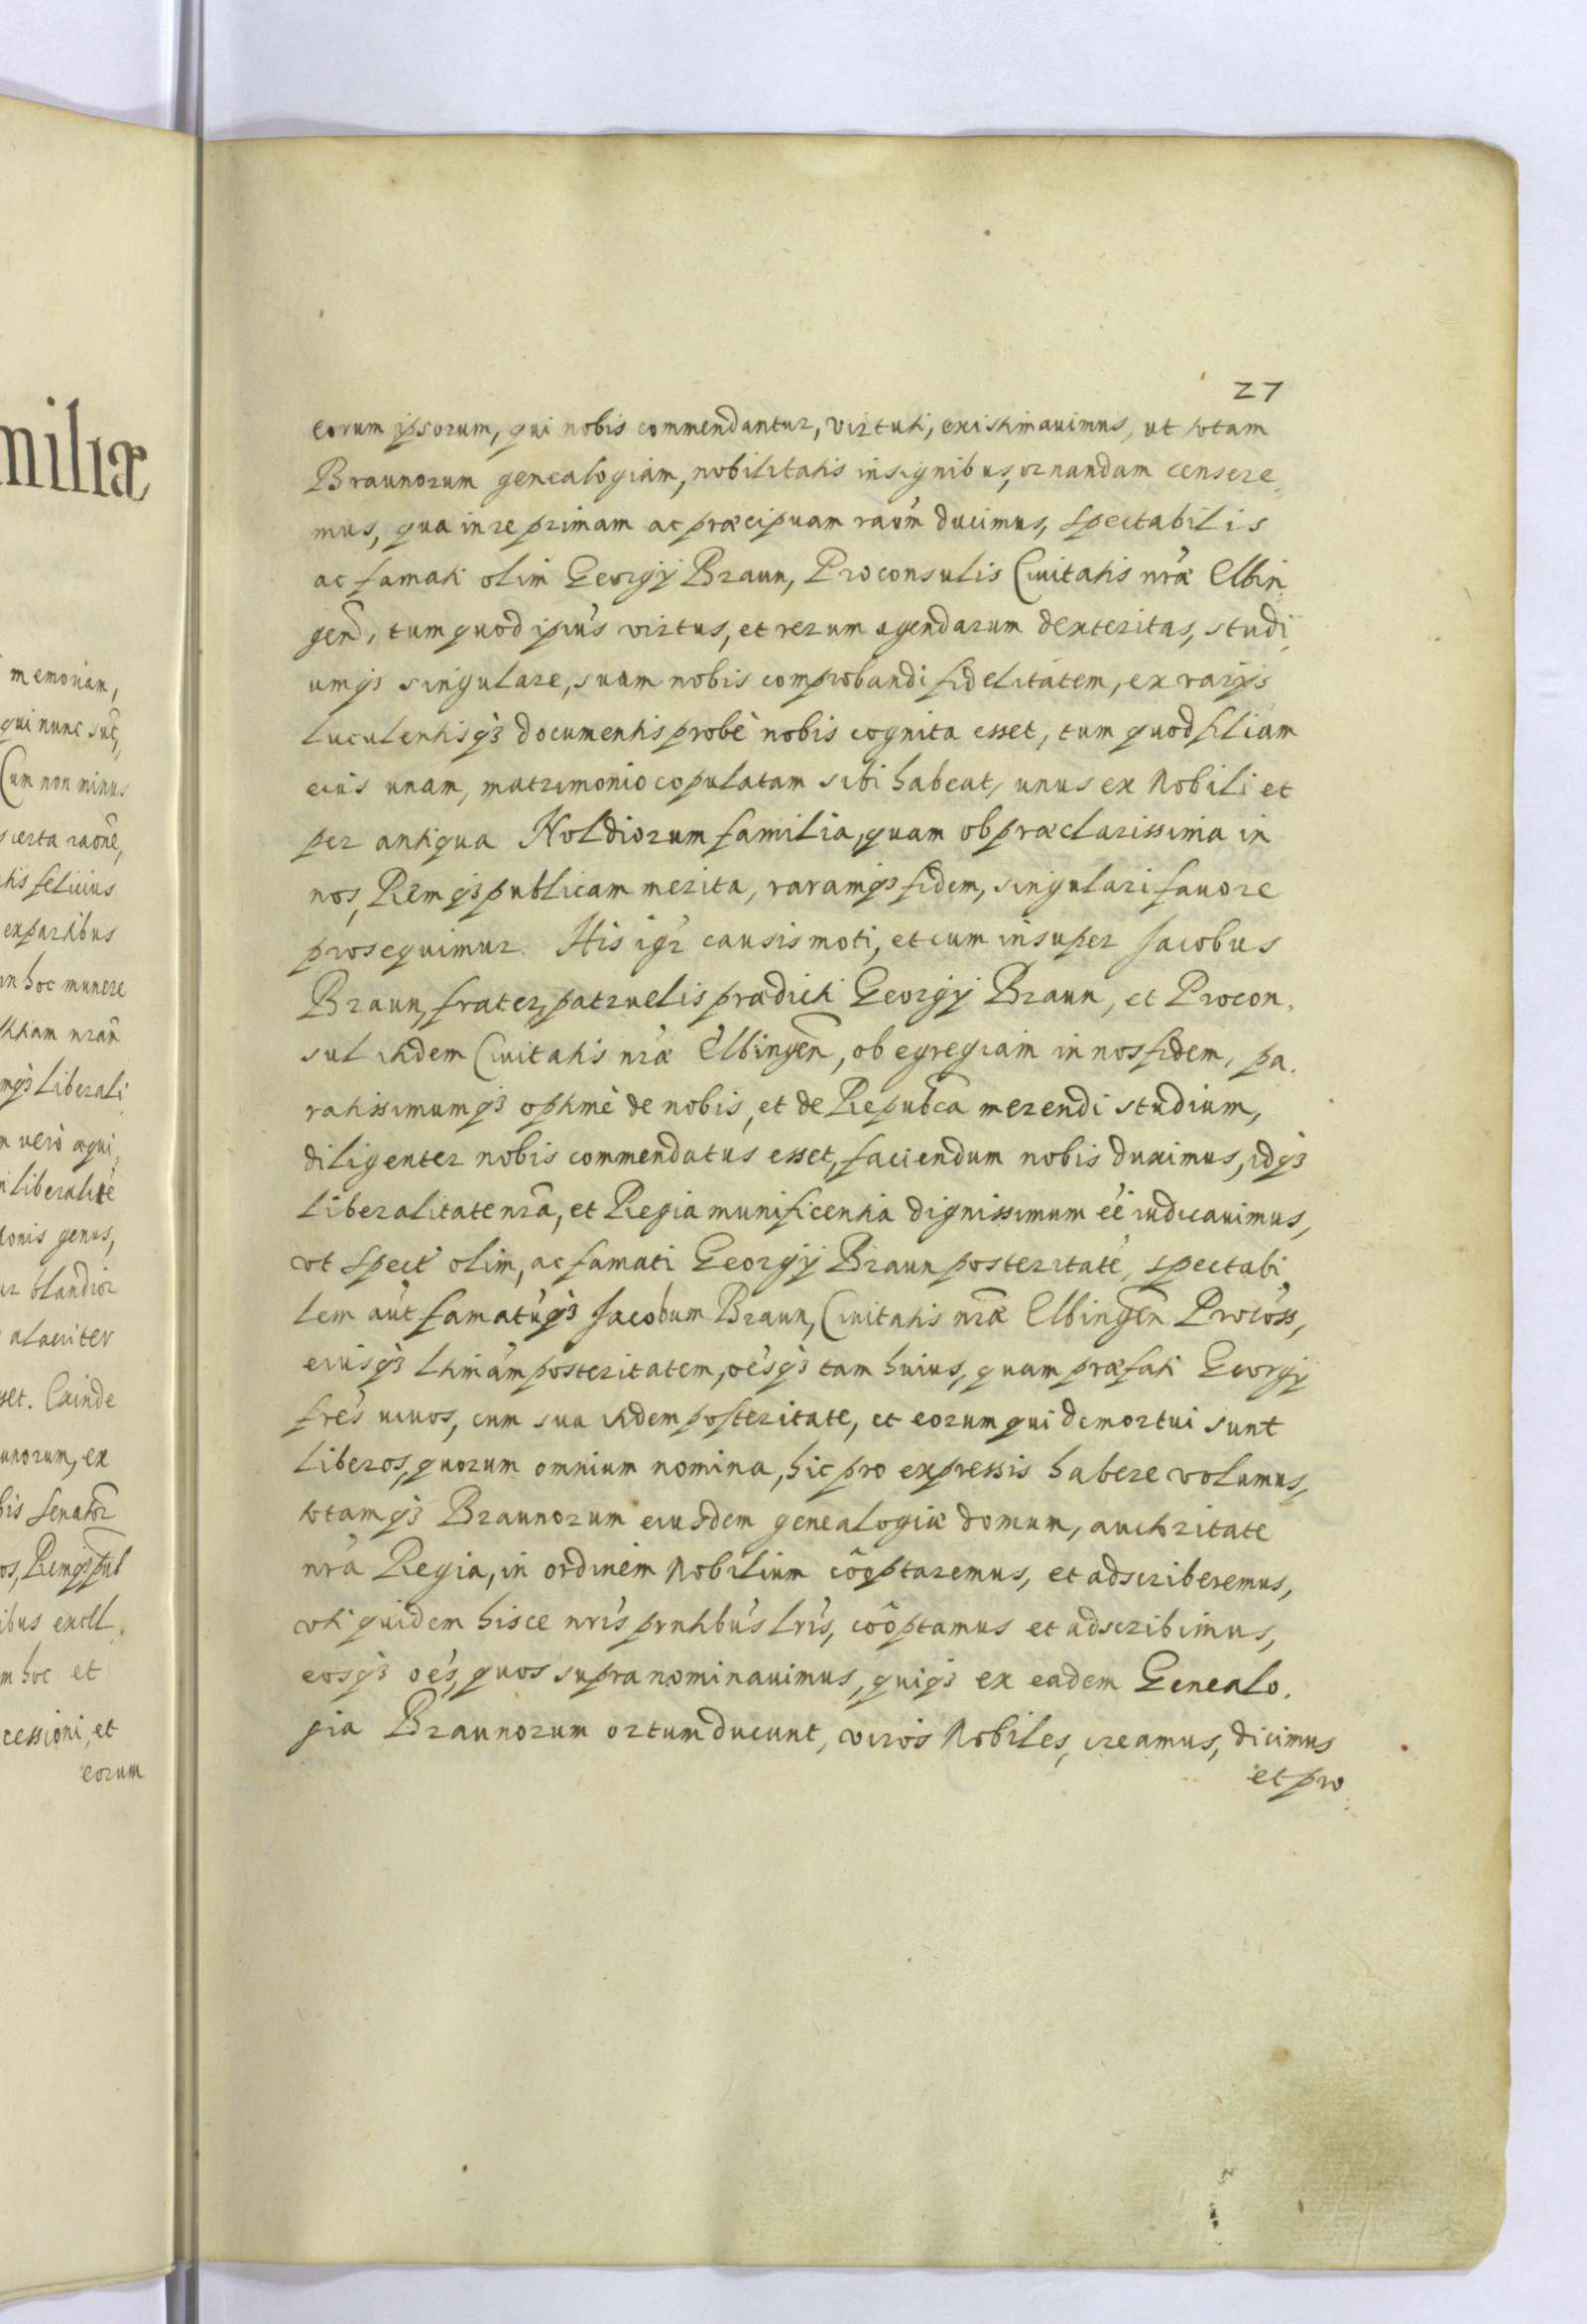 27
eorum ipsorum, qui nobis commendantur, virtuti, existimavimus, ut totam
Braunorum genealogiam, nobilitatis insignibus, ornandam censere,
mus, qua in re primam ac præcipuam raöm ducimus, Spectabilis
ac famati olim Georgÿ Braun, Proconsulis Ciuitatis nr̃æ Elbin,
gen̄, tum quod ipius virtus, et rerum agendarum dexteritas, studi,
umq3 singulare, suam nobis comprobandi fidelitatem, ex varÿs
luculentisq3 documentis probè nobis cognita esset, tum quod filiam
eius unam, matrimonio copulatam sibi habeat, unus ex Nobili et
per antiqua Noldiorum familia, quam ob præclarissima in
nos, Remq3 publicam merita, raramq3 fidem, singulari favore
prosequimur. His igr̃ causis moti, et cum insuper Jacobus
Braun, frater, patruelis prædicti Georgÿ Braun, et Procon,
sul itidem Ciuitatis nr̃æ Elbingen̄, ob egregiam in nos fidem, pa,
ratissimumq3 optimè de nobis, et de Republ̃ca merendi studium,
diligenter nobis commendatus esset, faciendum nobis duximus, idq3
liberalitate nr̃a, et Regia munificentia dignissimum eé iudicauimus,
vt Spect̃ olim, ac famati Georgÿ Braun posteritatē, spectabi,
lem aũt famatũq3 Jacobum Braun, Ciuitatis nr̃æ Elbingen̄ Procõss,
eiusq3 ltimãm posteritatem, oẽsq3 tam huius, quam præfati Georgÿ
frẽs uiuos, cum sua itidem posteritate, et eorum qui demortui sunt
liberos, quorum omnium nomina, hic pro expressis habere volumus,
totamq3 Braunorum eiusdem genealogiæ domum, authoritate
nr̃a Regia, in ordinem Nobilium côoptaremus, et adscriberemus,
vti quidem hisce nr̃is prntibũs lr̃is, coôptamus et adscribimus,
eosq3 oẽs, quos supra nominauimus, quiq3 ex eadem Genealo,
gia Braunorum ortum ducunt, viros Nobiles, creamus, dicimus
et pro